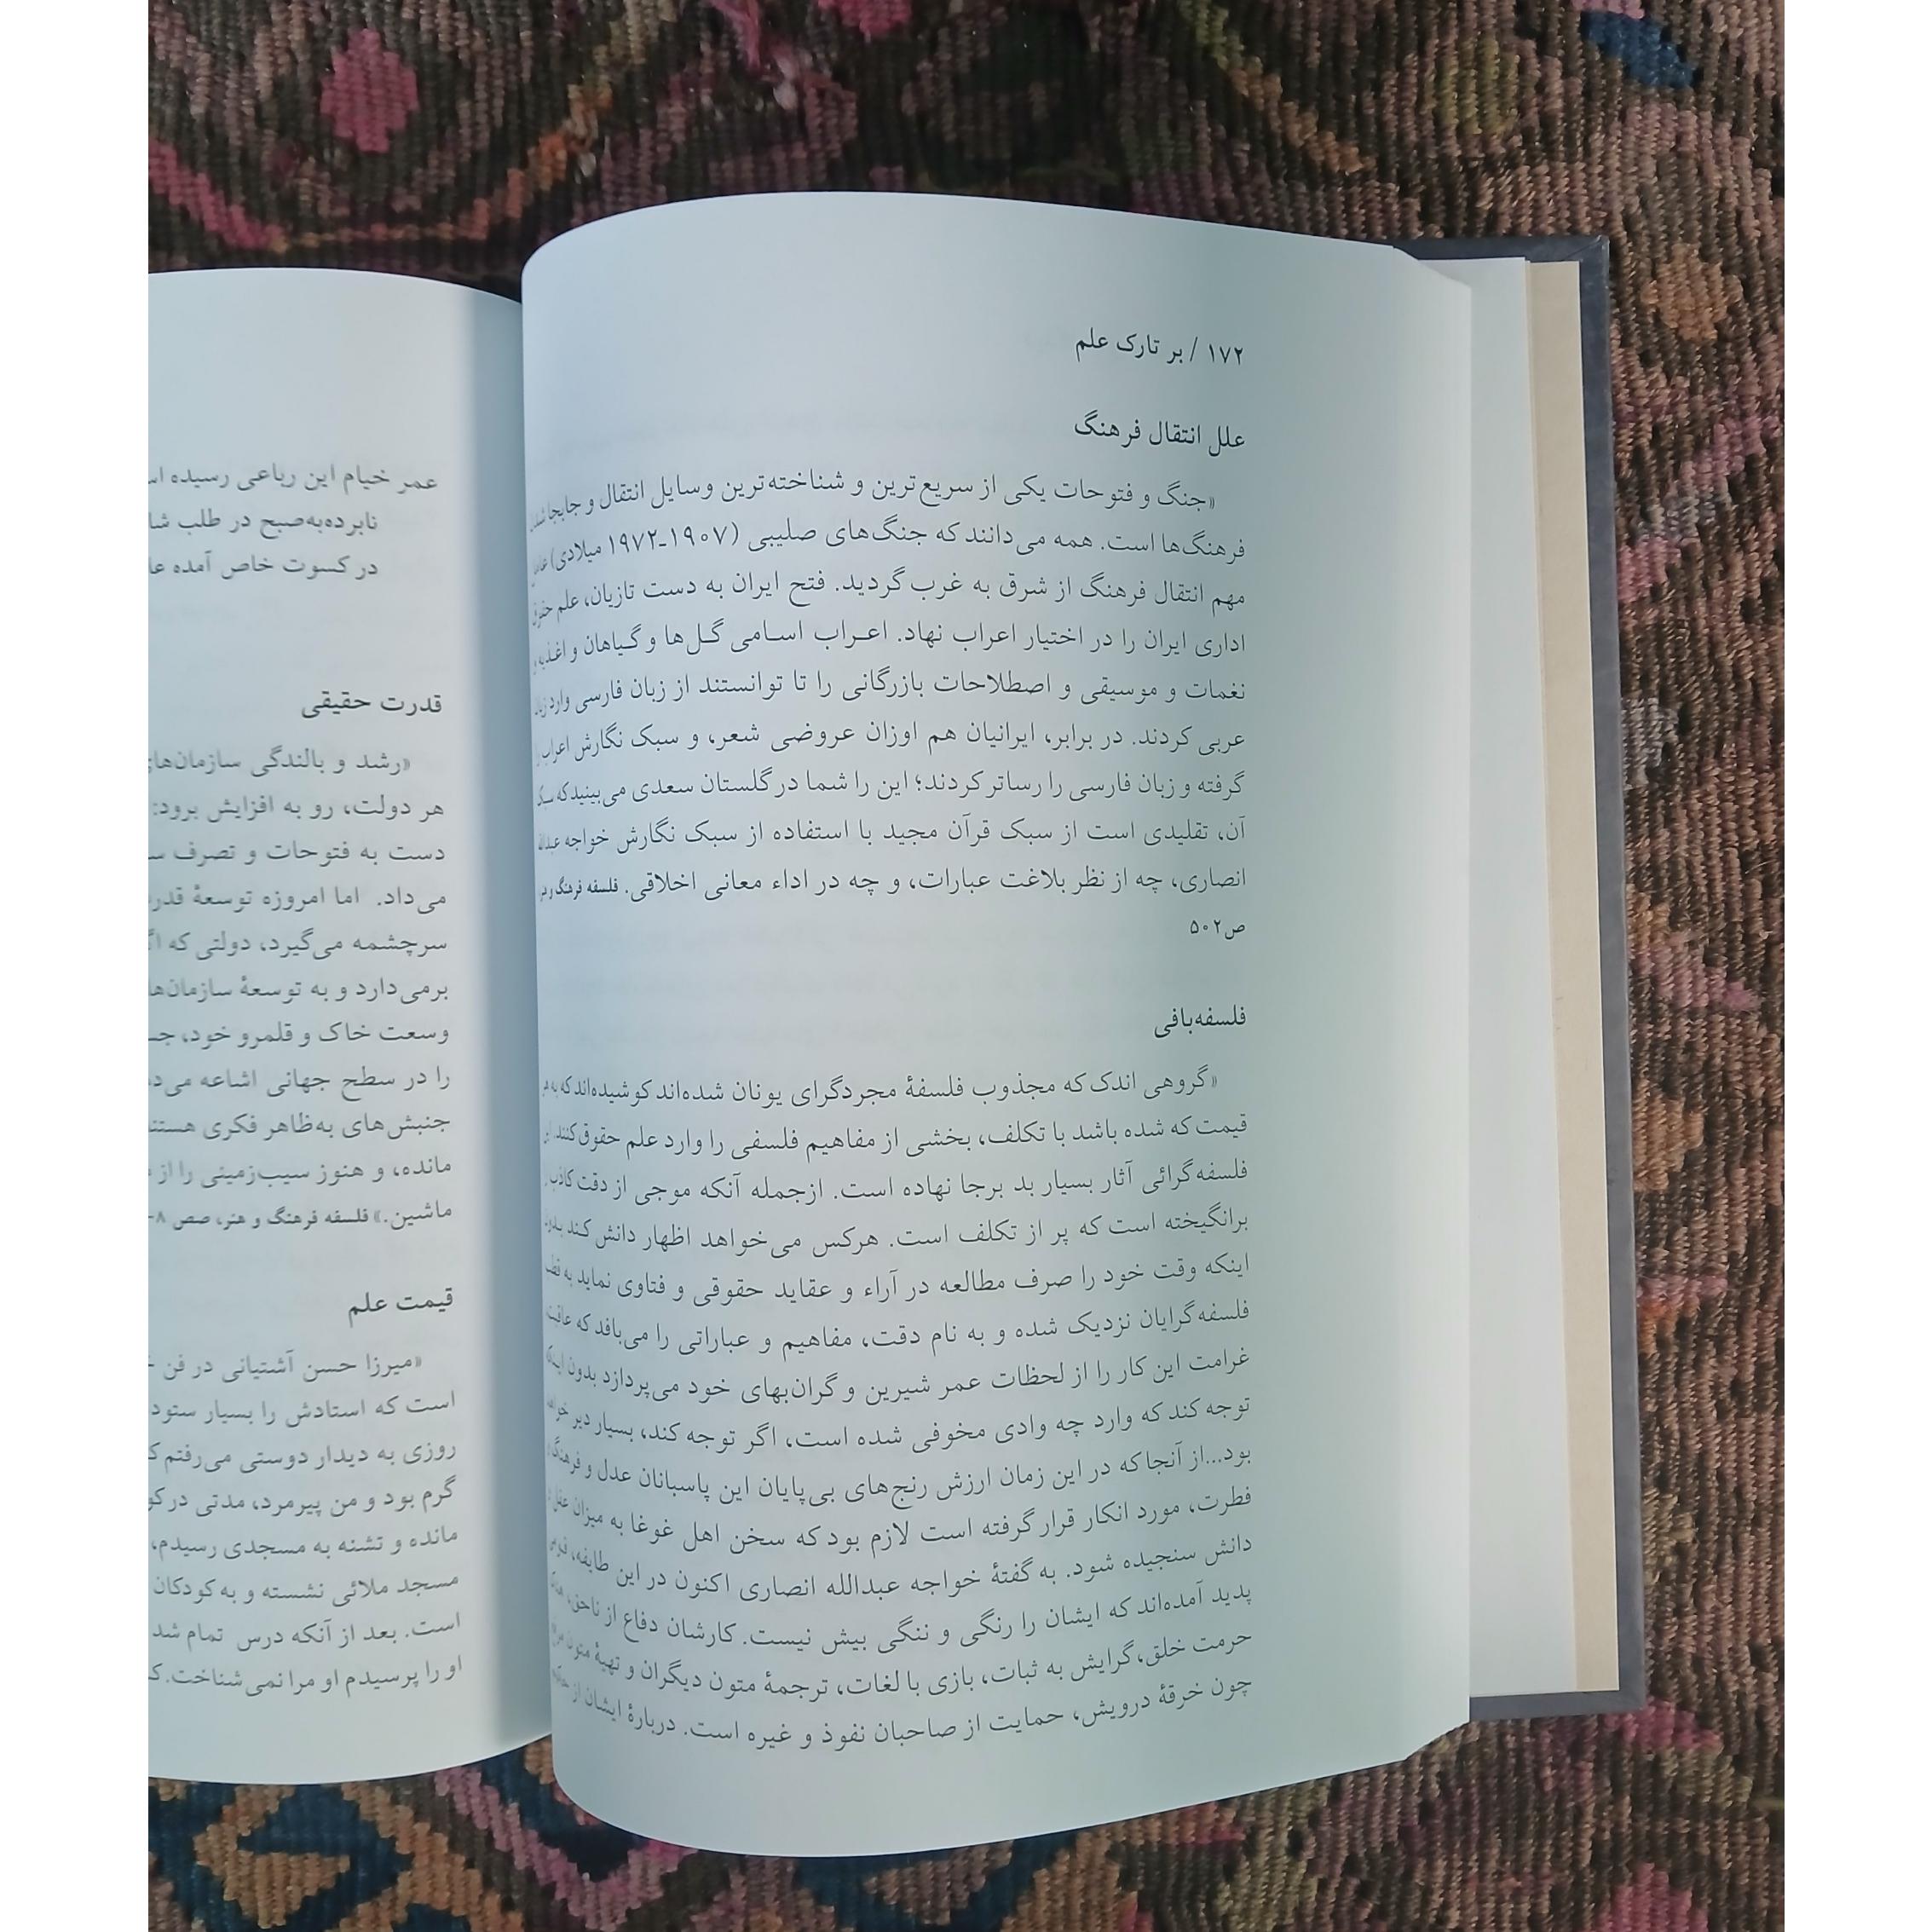 ۱۷۲ / بر تارک علم
علل انتقال فرهنگ
«جنگ و فتوحات یکی از سریع‌ترین و شناخته‌ترین وسایل انتقال و جابجا شدن
فرهنگ‌ها است. همه می‌دانند که جنگ‌های صلیبی (۱۹۰۷-۱۹۷۲ میلادی) عامل
مهم انتقال فرهنگ از شرق به غرب گردید. فتح ایران به دست تازیان، علم حقوق
اداری ایران را در اختیار اعراب نهاد. اعراب اسامی گل‌ها و گیاهان و اغذیه و
نغمات و موسیقی و اصطلاحات بازرگانی را تا توانستند از زبان فارسی وارد زبان
عربی کردند. در برابر، ایرانیان هم اوزان عروضی شعر، و سبک نگارش اعراب را
گرفته و زبان فارسی را رساتر کردند؛ این را شما در گلستان سعدی می‌بینید که سبک
آن، تقلیدی است از سبک قرآن مجید با استفاده از سبک نگارش خواجه عبدالله
انصاری، چه از نظر بلاغت عبارات، و چه در اداء معانی اخلاقی. فلسفه فرهنگ و هنر
ص۵۰۲
فلسفه‌بافی
«گروهی اندک که مجذوب فلسفهٔ مجردگرای یونان شده‌اند کوشیده‌اند که به هر
قیمت که شده باشد با تکلف، بخشی از مفاهیم فلسفی را وارد علم حقوق کنند. این
فلسفه‌گرائی آثار بسیار بد برجا نهاده است. ازجمله آنکه موجی از دقت کاذب
برانگیخته است که پر از تکلف است. هرکس می‌خواهد اظهار دانش کند بدون
اینکه وقت خود را صرف مطالعه در آراء و عقاید حقوقی و فتاوی نماید به قطب
فلسفه‌گرایان نزدیک شده و به نام دقت، مفاهیم و عباراتی را می‌بافد که عاقبت
غرامت این کار را از لحظات عمر شیرین و گران‌بهای خود می‌پردازد بدون اینکه
توجه کند که وارد چه وادی مخوفی شده است، اگر توجه کند، بسیار دیر خواهد
بود...از آنجا که در این زمان ارزش رنج‌های بی‌پایان این پاسبانان عدل و فرهنگ
فطرت، مورد انکار قرار گرفته است لازم بود که سخن اهل غوغا به میزان عقل
دانش سنجیده شود. به گفتهٔ خواجه عبدالله انصاری اکنون در این طایفه، قومی
پدید آمده‌اند که ایشان را رنگی و ننگی بیش نیست. کارشان دفاع از ناحق، هتک
حرمت خلق، گرایش به ثبات، بازی با لغات، ترجمهٔ متون دیگران و تهیهٔ متون
چون خرقهٔ درویش، حمایت از صاحبان نفوذ و غیره است. دربارهٔ ایشان از
عمر خیام این رباعی رسیده
نابرده‌به‌صبح در طلب
در کسوت خاص آمده
قدرت حقیقی
«رشد و بالندگی سازمان‌های
هر دولت، رو به افزایش برود:
دست به فتوحات و تصرف
می‌داد. اما امروزه توسعهٔ
سرچشمه می‌گیرد، دولتی که
برمی‌دارد و به توسعهٔ
وسعت خاک و قلمرو خود،
را در سطح جهانی اشاعه
جنبش‌های به‌ظاهر فکری هستند
مانده، و هنوز سیب‌زمینی را از
ماشین.» فلسفه فرهنگ و هنر، صص
قیمت علم
«میرزا حسن آشتیانی در فن
است که استادش را بسیار
روزی به دیدار دوستی می‌رفتم
گرم بود و من پیرمرد، مدتی
مانده و تشنه به مسجدی رسیدم،
مسجد ملائی نشسته و به کودکان
است. بعد از آنکه درس تمام شد
او را پرسیدم او مرا نمی‌شناخت.